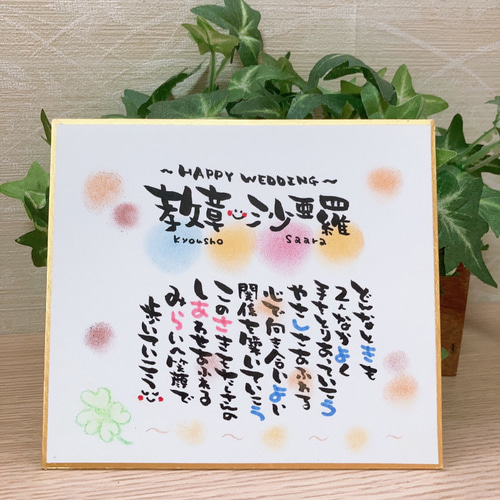 ~HAPPY WEDDING~
教章 沙亜羅
kyousho saara
どんなときも
2人なかよく
手をとりあっていこう
やさしさあふれる
心で向き合いよい
関係を築いていこう
このさきもたくさんの
しあわせあふれる
みらいへ笑顔で
歩いていこう